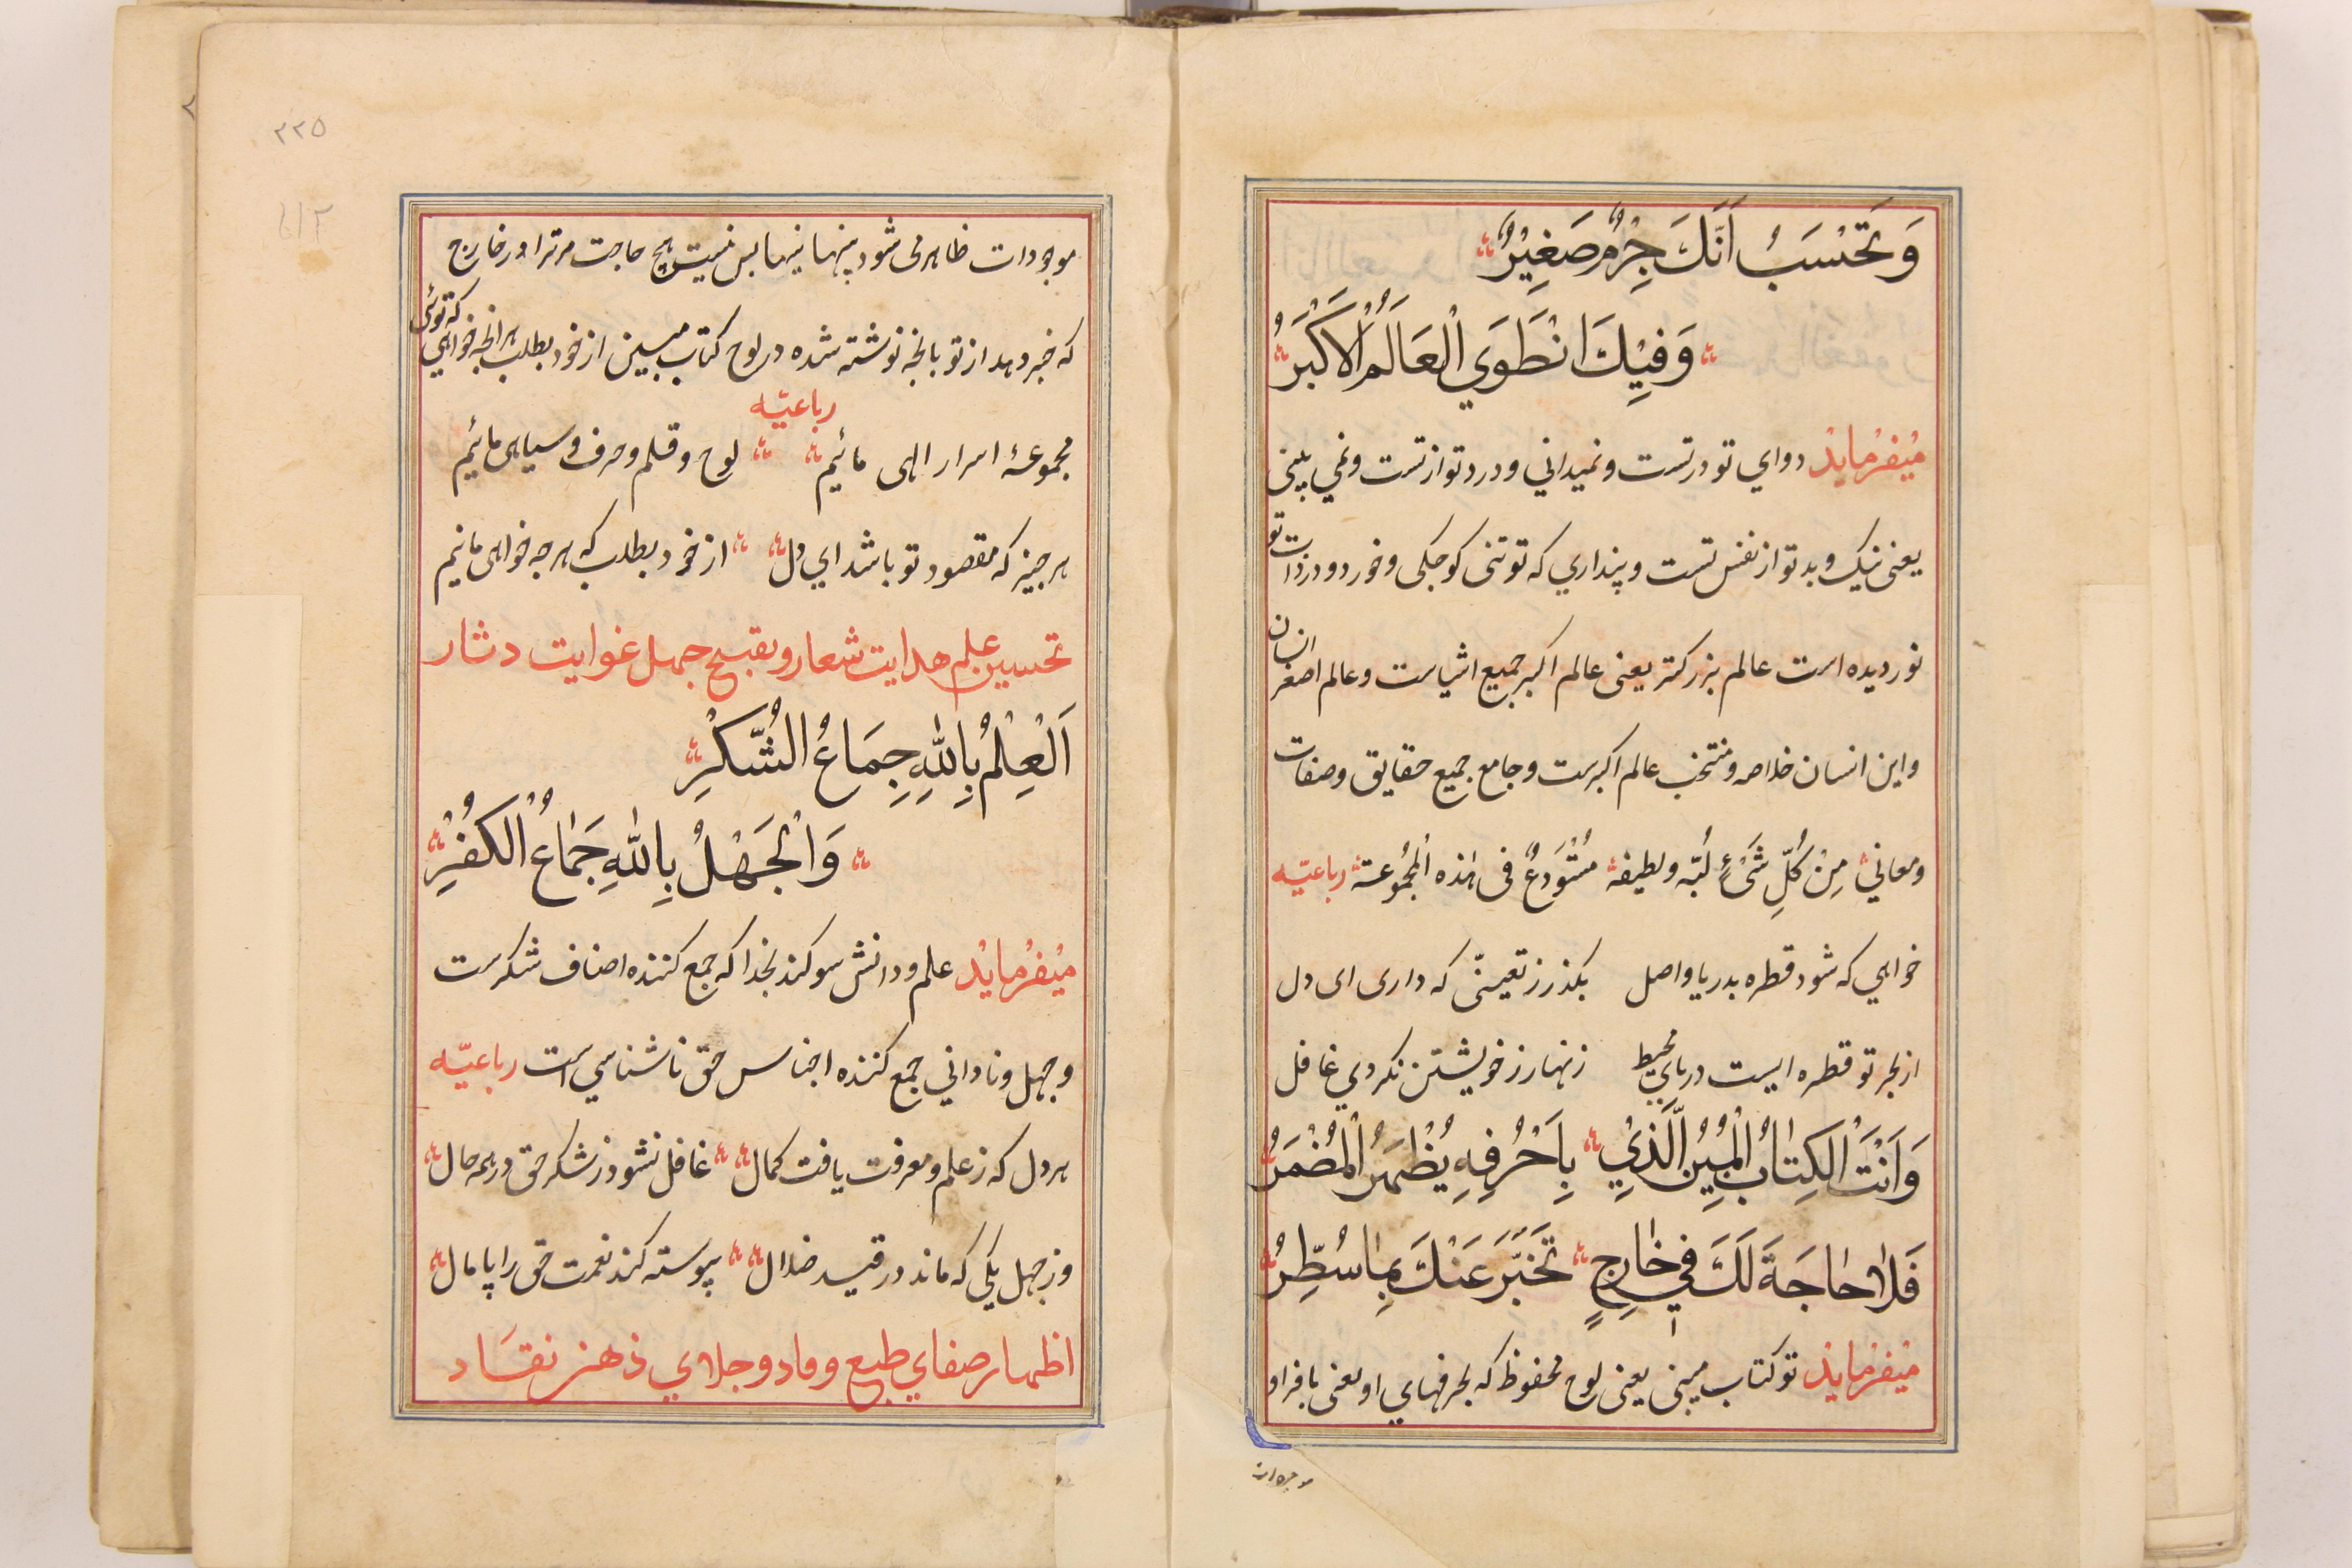 وَتَحْسَبُ اَنَّكَ جِرْمٌ صَغِيْرٌ
وَفِيْكَ انْطَوَي الْعَالَمُ الْاَكْبَرُ
مَيْفَرْمايَدْ دواي تو درتست ونميداني ودرد تو ازتست ونمي بيني
يعنى نيك وبد تو از نفس تست وپنداري كه تو تنى كوچكى وخورد ودر ذات تو
نورديده است عالم بزركتر يعنى عالم اكبر جميع اشياست وعالم اصغر انسان
واين انسان خلاصه ومنتخب عالم اكبرست وجامع جميع حقايق وصفات
ومعاني مِنْ كُلِّ شَىْءٍ لُبّه ولطيفه مُسْتَوْدعٌ فى هذه الْمجْمُوعة رباعيّه
خواهي كه شود قطره بدريا واصل بكذر ز تعينّى كه دارى اى دل
از بحر تو قطره ايست درياي محيط زنهار ز خويشتن نكردي غافل
وَاَنْتَ الْكِتابُ الْمُبِيْنُ الَّذِيْ بِاَحْرُفِهِ يُظْهَرُ الْمُضْمَرُ
فَلا حاجَةَ لَكَ فِي خارِجٍ تُخَبِّرُ عَنْكَ بِما سُطِّرُ
مَيْفَرْمايَدْ تو كتاب مبينى يعنى لوح محفوظ كه بحرفهاي او يعنى بافراد
موجودات
٢٢٥
موجودات ظاهر مى شود پنهانيها پس نيست هيچ حاجت مر ترا در خارج
كه خبر دهد از تو بانچه نوشته شده در لوح كتاب مبين از خود بطلب هر انچه خواهي كه توئي
رباعيّه
مجموعهٔ اسرار الهى مائيم لوح وقلم وحرف وسياهى مائيم
هر چيز كه مقصود تو باشد اي دل از خود بطلب كه هر چه خواهى مائيم
تحسين علم هدايت شعار وتقبيح جهل غوايت دثار
اَلْعِلْمُ بِاللهِ جِمَاعُ الشُّكْرِ
وَالْجَهْلُ بِاللهِ جَمَاعُ الْكُفْرِ
مَيْفَرْمايَدْ علم ودانش سوكند بخدا كه جمع كننده اصناف شكرست
وجهل ونادانى جمع كننده اجناس حق ناشناسي است رباعيّه
هر دل كه ز علم ومعرفت يافت كمال غافل نشود ز شكر حق در همه حال
وز جهل يكي كه ماند در قيد ضلال پيوسته كند نعمت حق را پامال
اظهار صفاي طبع وقاد وجلاي ذهن نقاد